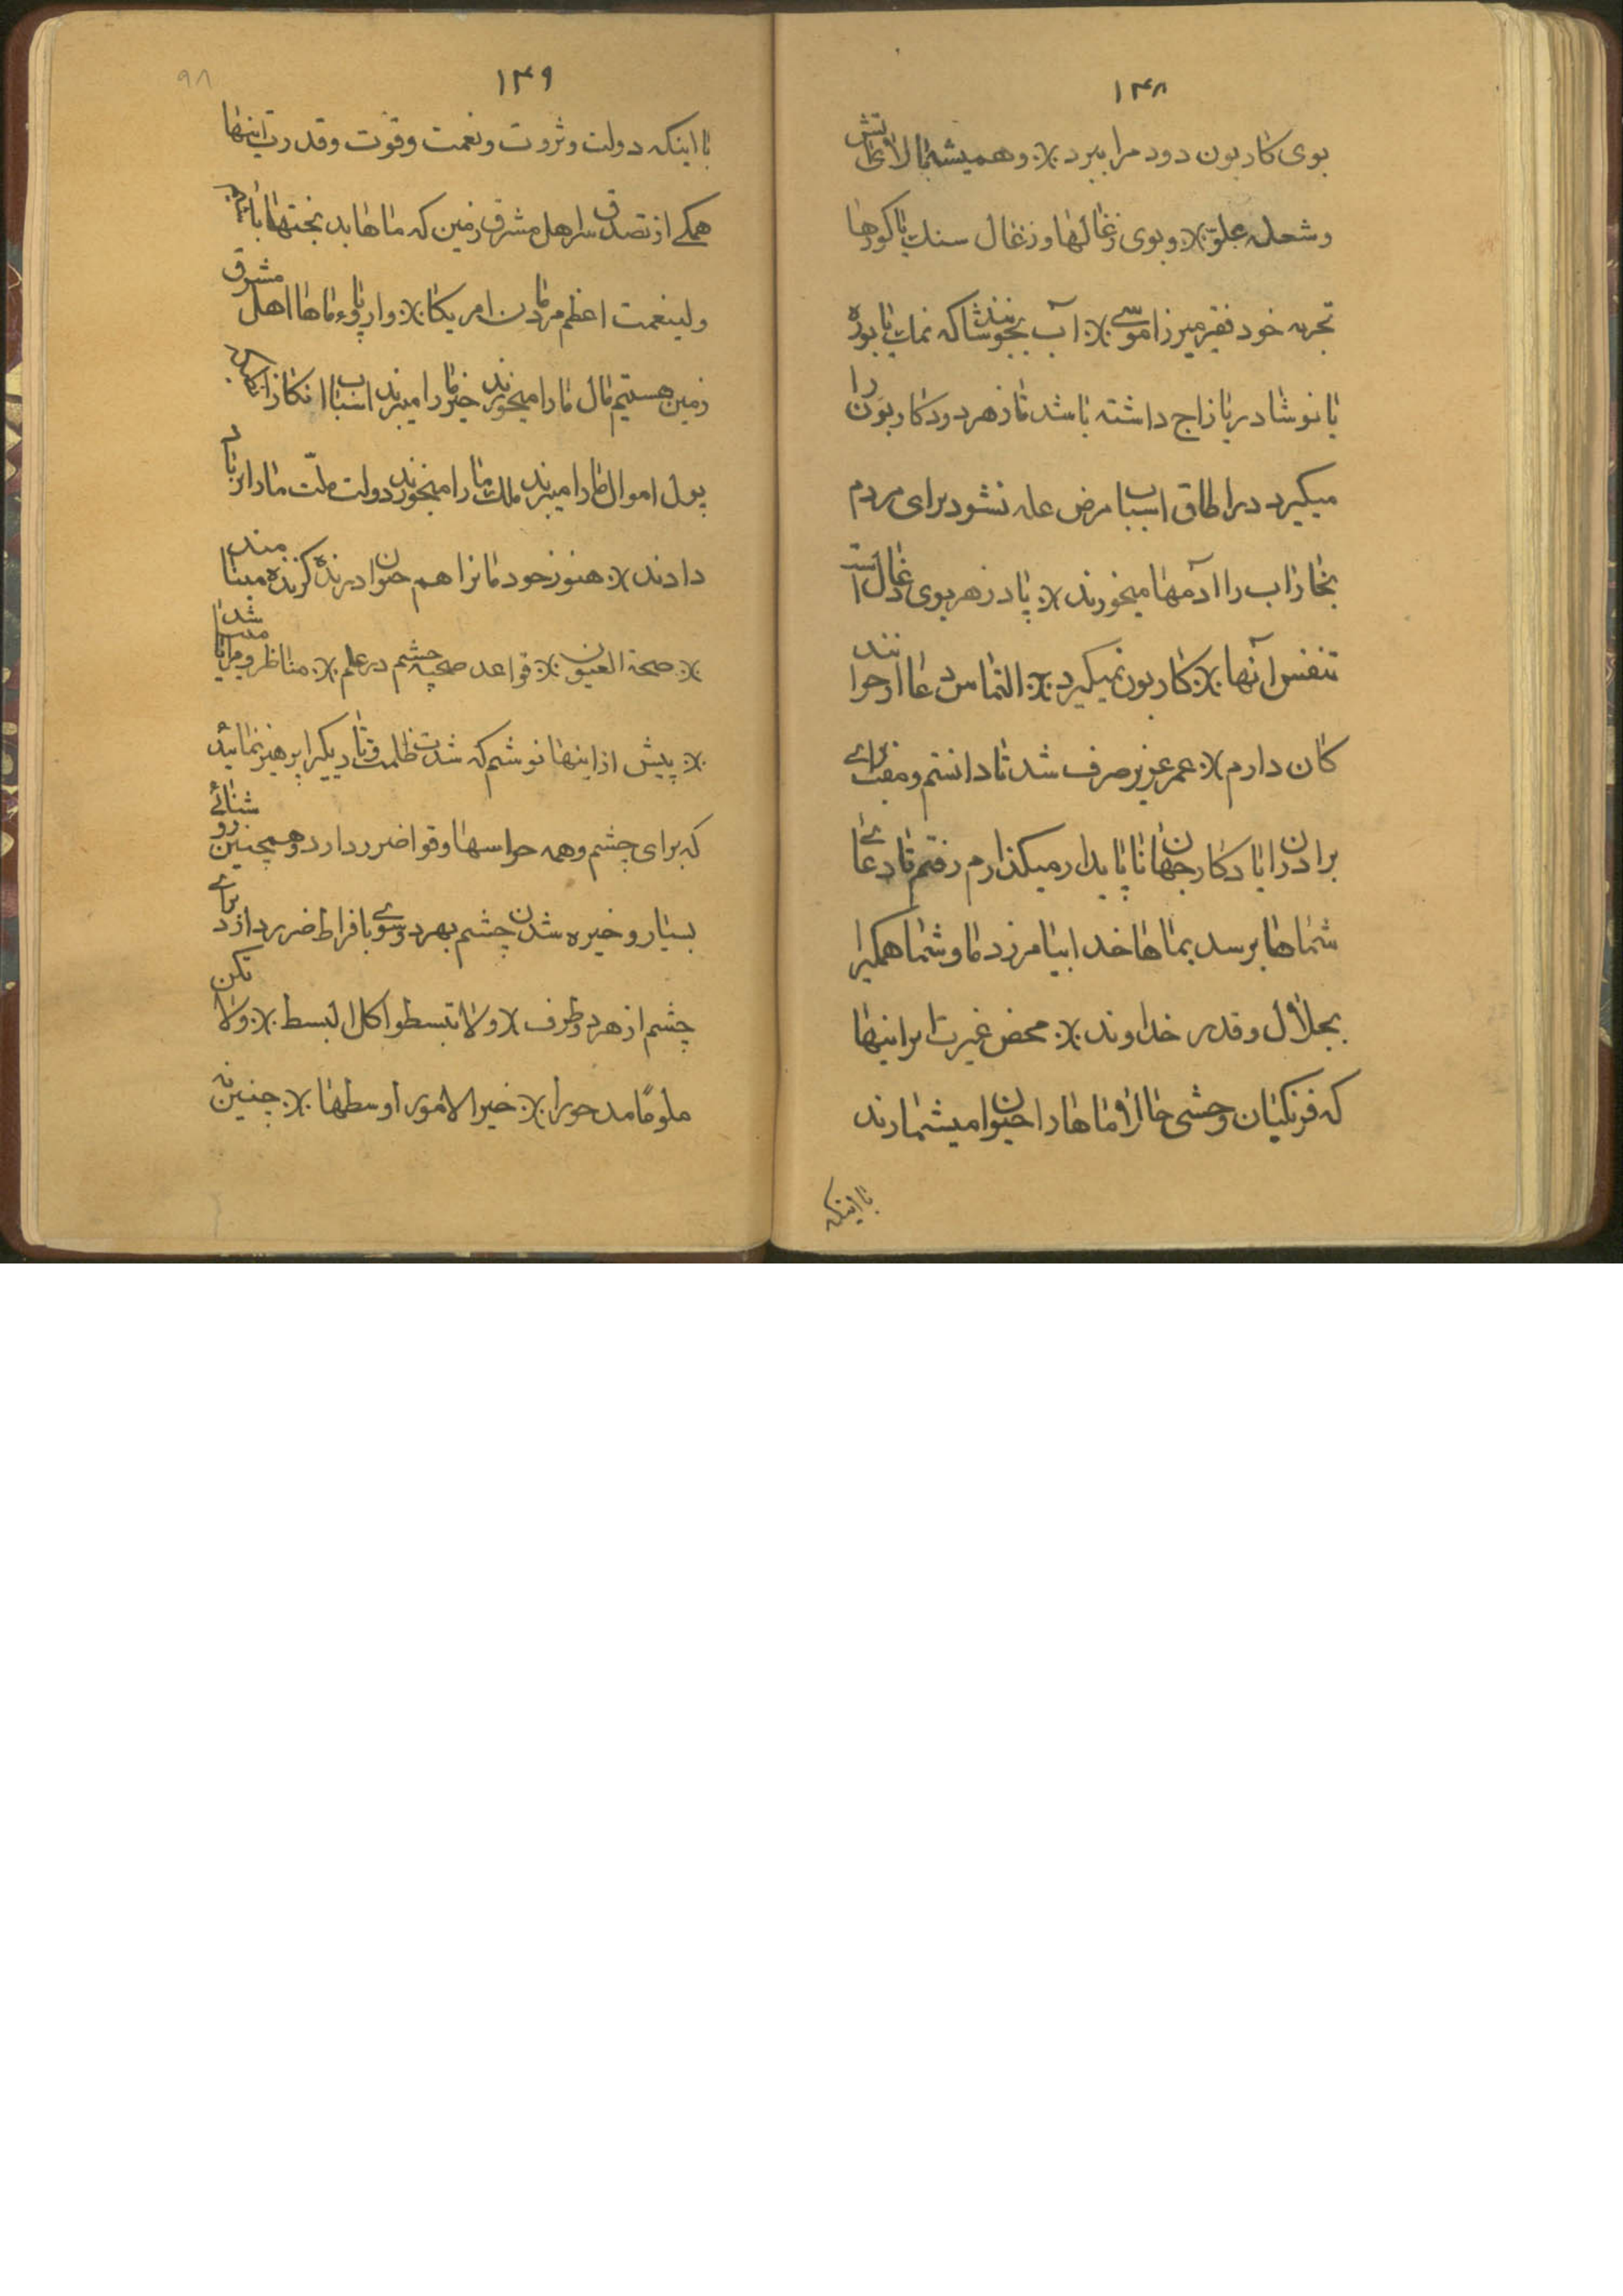 ۱۴۸
بوی کاربون دود مرا ببرد ؞ و همیشه بالای آتش
و شعله معلق ؞ و بوی زغالها و زغال سنک یا کورها
تجربه خود فقیر میرزا موسی ؞ آب بجوشانند که نمک یا بوره
یا نوشادر یا زاج داشته باشد تا زهر دود کاربون را
میکیرد در اطاق اسباب مرض عله نشود برای مردم
بخار آب را آدمها میخورند ؞ پادزهر بوی ذغال است
تنفس آنها ؞ کاربون نمیکیرد ؞ التماس دعا از خوانند
کان دارم ؞ عمر عزیز صرف شد تا دانستم و مفت برای
برادران یادکار جهان ناپایدار میکذارم رفتم تا دعای
شماها برسد بماها خدا بیامرزد ما و شما همکیرا
بجلال و قدر خداوند ؞ محض غیرت ایرانیها
که فرنکیان وحشی حالا ماها را حیوان میشمارند
با اینکه
۱۴۹
۹۸
با اینکه دولت و ثروت و نعمت و قوت و قدرت اینها
همکی از تصدق سر اهل مشرق زمین که ماها بدبختها
ولینعمت اعظم مردمان امریکا ؞ و ارپا و ماها اهل مشرق
زمین هستیم مال ما را میخورند چیز ما را میبرند اسباب
پول اموال ما را میبرند ملک ما را میخورند دولت ملت ما را بر باد
دادند ؞ هنوز خود مانرا هم حیوان درنده کزنده مینامند
؞ صحة العیون ؞ قواعد صحیه چشم در علم ؞ مناظر و مرایا
؞ پیش از اینها نوشتم که شدت ظلمت و تاریکی را پرهیز نمائید
که برای چشم و همه حواسها و قوا ضرر دارد و همچنین روشنائی
بسیار و خیره شدن چشم بهر دو سوی با فراط ضرر دارد برای
چشم از هر دو طرف ؞ و لا تبسطوا کل البسط ؞ و لا تکن
ملوما مدحورا ؞ خیر الامور اوسطها ؞ چنین